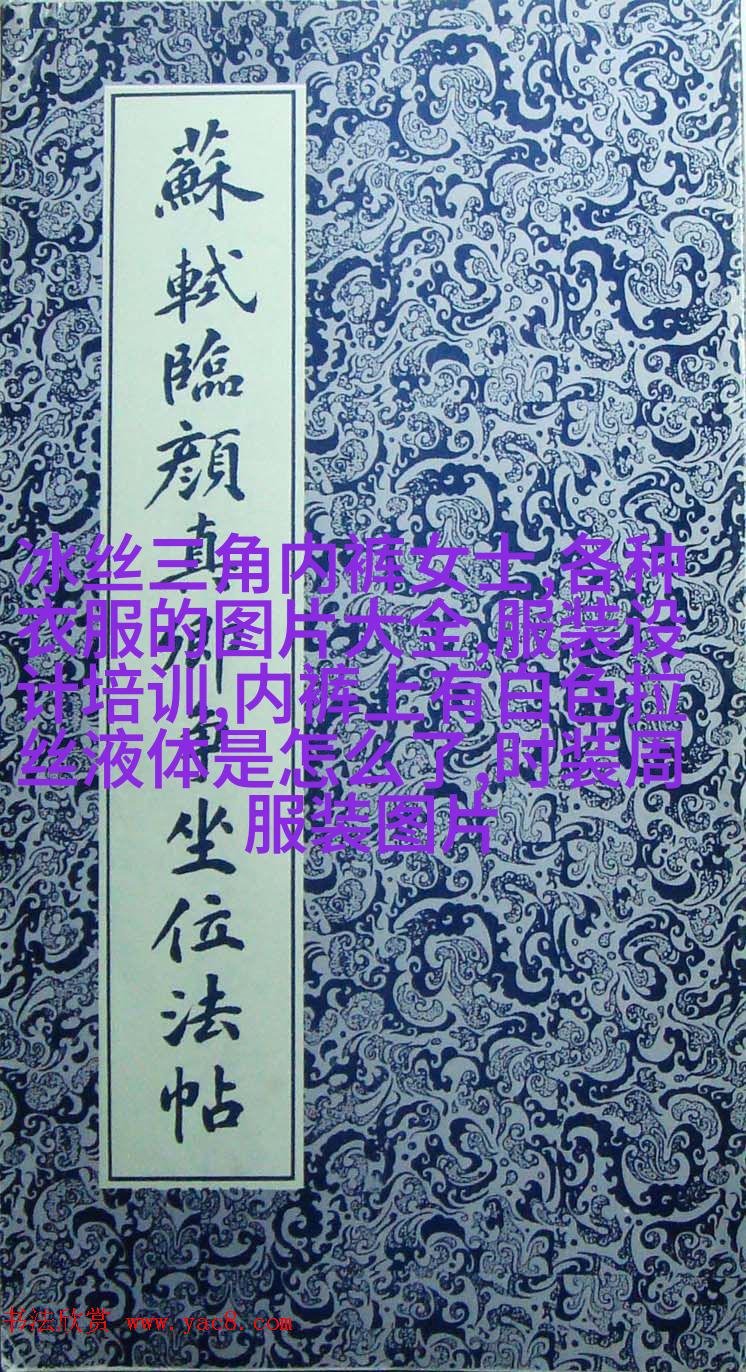 蘇軾臨顔真卿争坐位法帖
冰丝三角内裤女士,各种
衣服的图片大全,服装设
计培训,内裤上有白色拉
丝液体是怎么了,时装周
服装图片
书法欣赏 www.yac8.com